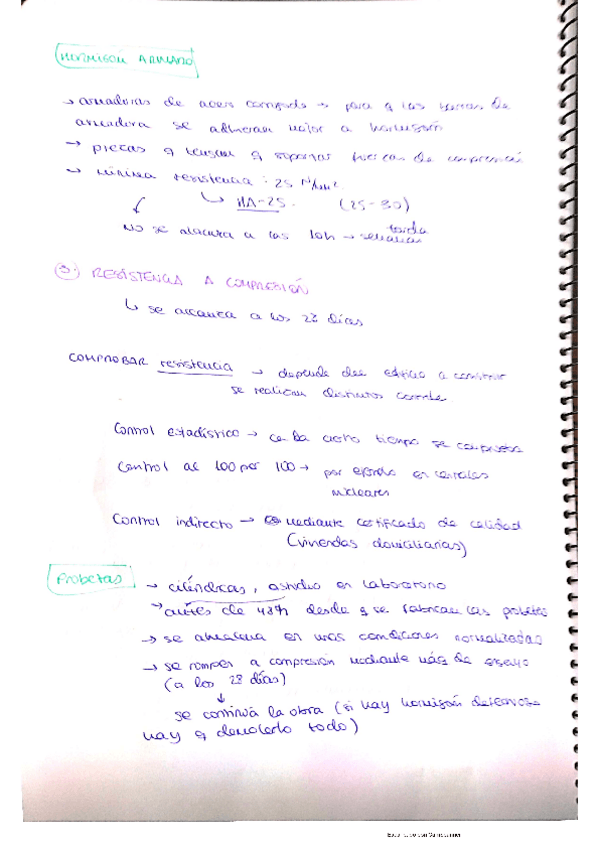 HORMIGÓN ARMADO
→ armaduras de acero corrugado → para q las barras de
armadura se adhieran mejor a hormigón
→ piezas q tengan q soportar fuerzas de compresión
→ mínima resistencia: 25 N/mm²
↳ HA-25. (25-30)
No se alcanza a las 10h → tarda semanas
3. RESISTENCIA A COMPRESIÓN
↳ se alcanza a los 28 días
COMPROBAR resistencia → depende del edificio a construir
se realizan distintos
Control estadístico → cada cierto tiempo se comprueba
Control al 100 por 100 → por ejemplo en centrales
nucleares
Control indirecto → mediante certificado de calidad
(viviendas domiciliarias)
Probetas → cilíndricas, estudio en laboratorio
→ antes de 48h desde q se fabrican las probetas
→ se almacena en unas condiciones normalizadas
→ se rompen a compresión mediante máq de ensayo
(a los 28 días)
↓
se continúa la obra (si hay hormigón defectuoso
hay q demolerlo todo)